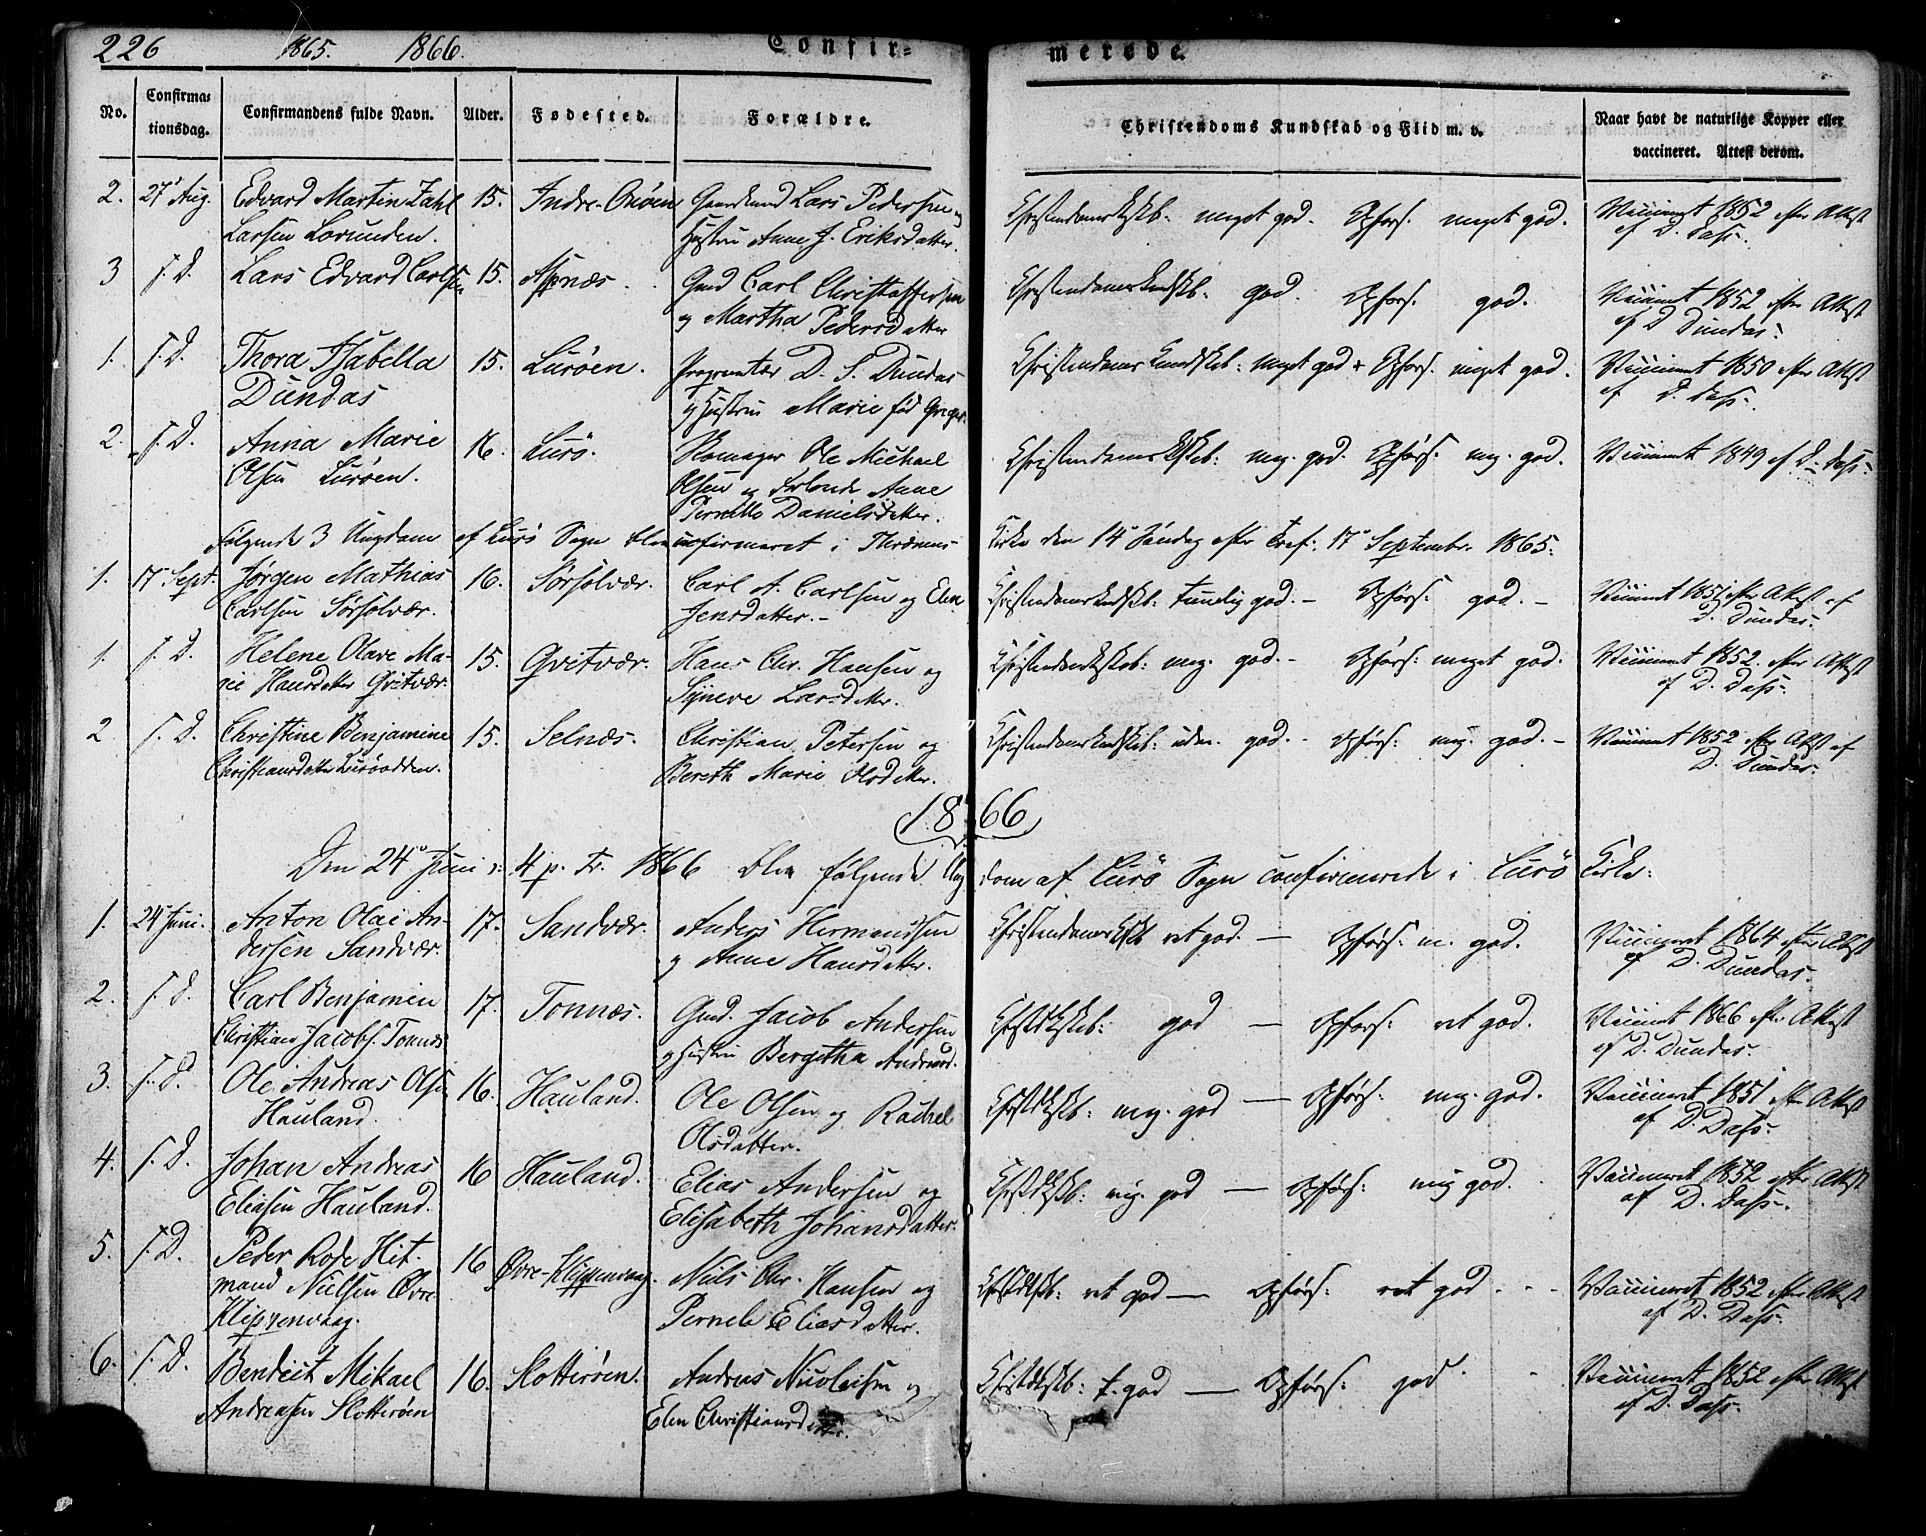 226 1865. 1866. Confir= merede.
No. Confirma= tionsdag. Confirmandens fulde Navn. Alder. Fødested. Forældre. Christendoms Kundskab og Flid m. v. Naar havt de naturlige Kopper eller vaccineret. Attest derom.
2. 27 Aug. Edvard Martin Zahl 15. Indre- Gaardmand Lars Pedersen og Christendomskskb: meget god. Opførs: meget god. Vaccineret 1852 efter Attest
Larsen Lovunden. Hustru Anne J. Eriksdatter. af D. Dass.
3 s. D. Lars Edvard Carlsen 15. Aspnæs. Gmd Carl Christoffersen Christendomskundskb: god. Opførs: god. Vaccineret 1852 efter Attest
og Martha Pedersdatter af D Dundas.
1. s. D. Thora Isabella 15. Lurøen. Proprietær D. S. Dundas Christendomskundskb: meget god Opførs. meget god. Vaccineret 1850 efter Attest
Dundas og Hustru Marie fød Greger. af D. Dass.
2. s. D. Anna Marie 16. Lurø. Ole Michael Christendomskskb: meg. god. Opførs: meg. god. Vaccineret 1849 af D. Dass.
Olsen Lurøen. Olsen og Anne
Pernille Danielsdatter.
Følgende 3 Ungdom af Lurø Sogn blev confirmeret i Thrænens Kirke den 14 Søndag efter Tref: 17 September 1865.
1. 17 Sept. Jørgen Mathias 16. Sørsolvær. Carl A. Carlsen og Elen Christendomskundskb: temelig god. - Opførs: god. - Vaccineret 1851 efter Attest af
Carlsen Sørsolvær. Jensdatter.- D. Dundas.
1. s. D. Helene Olave Ma- 15. Qvitvær. Hans Chr. Hansen og Christendomskskb: meg. god. - Opførs: meget god. Vaccineret 1852. efter Attest
rie Hansdatter Qvitvær. Syneve Larsdatter. af D. Dass.
2 s. D. Christine Benjamine 15. Selnæs. Christian Petersen og Christendomskundskb: god. - Opførs: meg. god. - Vaccineret 1852 efter Attest af
Christiansdatter Lurøodden. Bereth Marie Olsdatter. D. Dundas.
1866
Den 24 Juni 4 p. Tr. 1866 blev følgende Ungdom af Lurø Sogn confirmerede i Lurø Kirke:
1. 24 Juni. Anton Olai An- 17. Sandvær. Anders Hermansen Christendomskskb ret god. - Opførs: m. god. Vaccineret 1864 efter Attest
dersen Sandvær. og Anne Hansdatter. af D. Dundas.
2. s. D. Carl Benjamin 17. Tonnæs. Gmd. Jacob Andersen Christdkskb: god - Opførs: ret god. Vaccineret 1866 efter Attest
Christian Jacobs. Tonnæs og Hustru Bergitha Andreasd. af D. Dundas.
3. s. D. Ole Andreas Olsen 16. Hauland. Ole Olsen og Rachel Christdkskb: meg. god - Opførs: meg. god. Vaccineret 1851 efter Attest
Hauland. Olsdatter. af D. Dass.
4. s. D. Johan Andreas 16 Hauland. Elias Andersen og Christdkskb: meg. god - Opførs: meg god. Vaccineret 1852 efter Attest
Eliasen Hauland. Elisabeth Johansdatter. af D. Dass.
5. s. D. Peder Rose Hit- 16 Øvre-Klippenvaag. Niels Chr. Hansen og Christdkskb: ret god - Opførs: ret god. Vaccineret 1852 efter Attest
mand Nielsen Øvre Pernele Eliasdatter. af D. Dass.
Klippenvaag.
6. s. D. Bendeict Mikael 16. Slotterøen. Andreas Nicolaisen og Christdkskb: t. god - Opførs: god. Vaccineret 1852 efter Attest
Andreasen Slotterøen Elen Christiansdatter. af D. Dass.